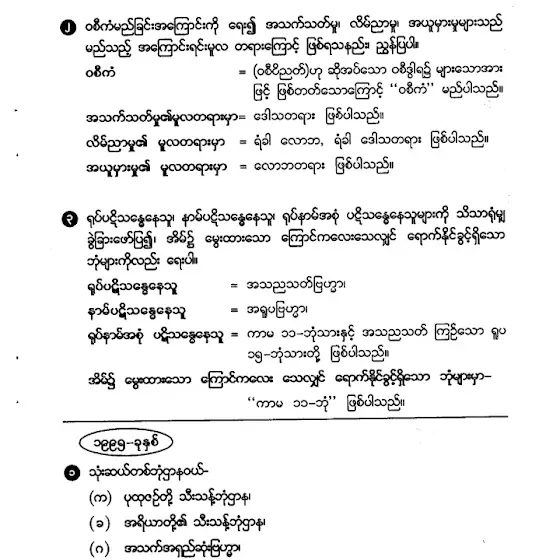 ၂ ဝစီကံမည်ခြင်းအကြောင်းကို ရေး၍ အသက်သတ်မှု၊ လိမ်ညာမှု၊ အယူမှားမှုများသည်
မည်သည့် အကြောင်းရင်းမူလ တရားကြောင့် ဖြစ်ရသနည်း။ ညွှန်ပြပါ။
ဝစီကံ = (ဝစီဝိညတ်)ဟု ဆိုအပ်သော ဝစီဒွါရ၌ များသောအား
ဖြင့် ဖြစ်တတ်သောကြောင့် “ဝစီကံ” မည်ပါသည်။
အသက်သတ်မှု၏မူလတရားမှာ = ဒေါသတရား ဖြစ်ပါသည်။
လိမ်ညာမှု၏ မူလတရားမှာ = ရံခါ လောဘ, ရံခါ ဒေါသတရား ဖြစ်ပါသည်။
အယူမှားမှု၏ မူလတရားမှာ = လောဘတရား ဖြစ်ပါသည်။
၃ ရုပ်ပဋိသန္ဓေနေသူ၊ နာမ်ပဋိသန္ဓေနေသူ၊ ရုပ်နာမ်အစုံ ပဋိသန္ဓေနေသူများကို သိသာရုံမျှ
ခွဲခြားဖော်ပြ၍၊ အိမ်၌ မွေးထားသော ကြောင်ကလေးသေလျှင် ရောက်နိုင်ခွင့်ရှိသော
ဘုံများကိုလည်း ရေးပါ။
ရုပ်ပဋိသန္ဓေနေသူ = အသညသတ်ဗြဟ္မာ၊
နာမ်ပဋိသန္ဓေနေသူ = အရူပဗြဟ္မာ၊
ရုပ်နာမ်အစုံ ပဋိသန္ဓေနေသူ = ကာမ ၁၁-ဘုံသားနှင့် အသညသတ် ကြဉ်သော ရူပ
၁၅-ဘုံသားတို့ ဖြစ်ပါသည်။
အိမ်၌ မွေးထားသော ကြောင်ကလေး သေလျှင် ရောက်နိုင်ခွင့်ရှိသော ဘုံများမှာ-
“ကာမ ၁၁-ဘုံ” ဖြစ်ပါသည်။
၁၉၉၅-ခုနှစ်
၁ သုံးဆယ်တစ်ဘုံဌာနဝယ်-
(က) ပုထုဇဉ်တို့ သီးသန့်ဘုံဌာန၊
(ခ) အရိယာတို့၏ သီးသန့်ဘုံဌာန၊
(ဂ) အသက်အရှည်ဆုံးဗြဟ္မာ၊